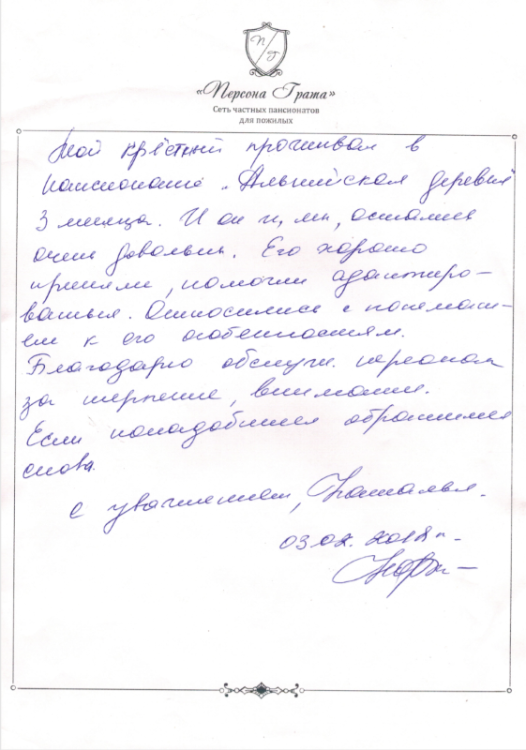 П
Г
«Персона Грата»
Сеть частных пансионатов
для пожилых
Мой крёстный проживал в
пансионате „Альпийская деревня"
3 месяца. И он и, мы, остались
очень довольны. Его хорошо
приняли, помогли адаптиро-
ваться. Относились с понимани-
ем к его особенностям.
Благодарю обслуж. персонал
за терпение, внимание.
Если понадобится обратимся
снова.
С уважением, Наталья.
03.02.2018 г.